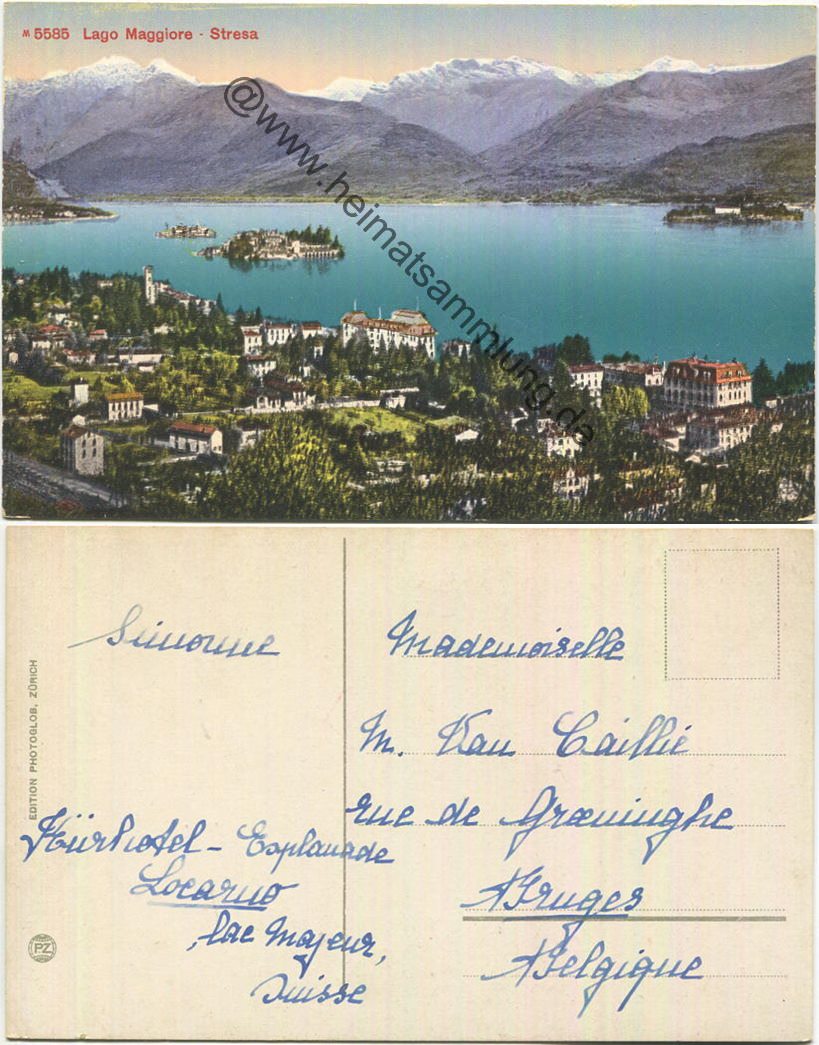 M 5585 Lago Maggiore - Stresa
@www.heimatsammlung.de
EDITION PHOTOGLOB, ZÜRICH
PZ
Simonne
Kürhotel - Esplanade
Locarno
lac Majeur,
Suisse
Mademoiselle
M. Van Caillie
rue de Grœninghe
Bruges
Belgique